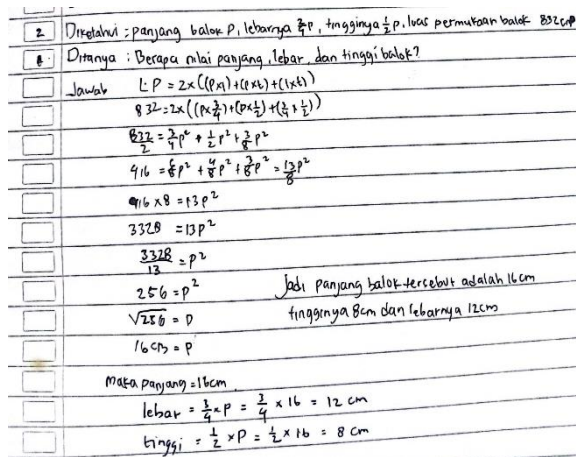 2 Diketahui : panjang balok P, lebarnya 3/4 P, tingginya 1/2 P, luas permukaan balok 832 cm²
Ditanya : Berapa nilai panjang, lebar, dan tinggi balok?
Jawab L·P = 2×((p×l)+(p×t)+(l×t))
832 = 2×((P×3/4)+(P×1/2)+(3/4×1/2))
832/2 = 3/4 P² + 1/2 P² + 3/8 P²
416 = 6/8 P² + 4/8 P² + 3/8 P² = 13P²/8
416 × 8 = 13P²
3328 = 13P²
3328/13 = P²
256 = P²
√256 = P
16 cm = P
Jadi panjang balok tersebut adalah 16 cm
tingginya 8cm dan lebarnya 12cm
Maka panjang = 16cm
lebar = 3/4 × P = 3/4 × 16 = 12 cm
tinggi = 1/2 × P = 1/2 × 16 = 8 cm